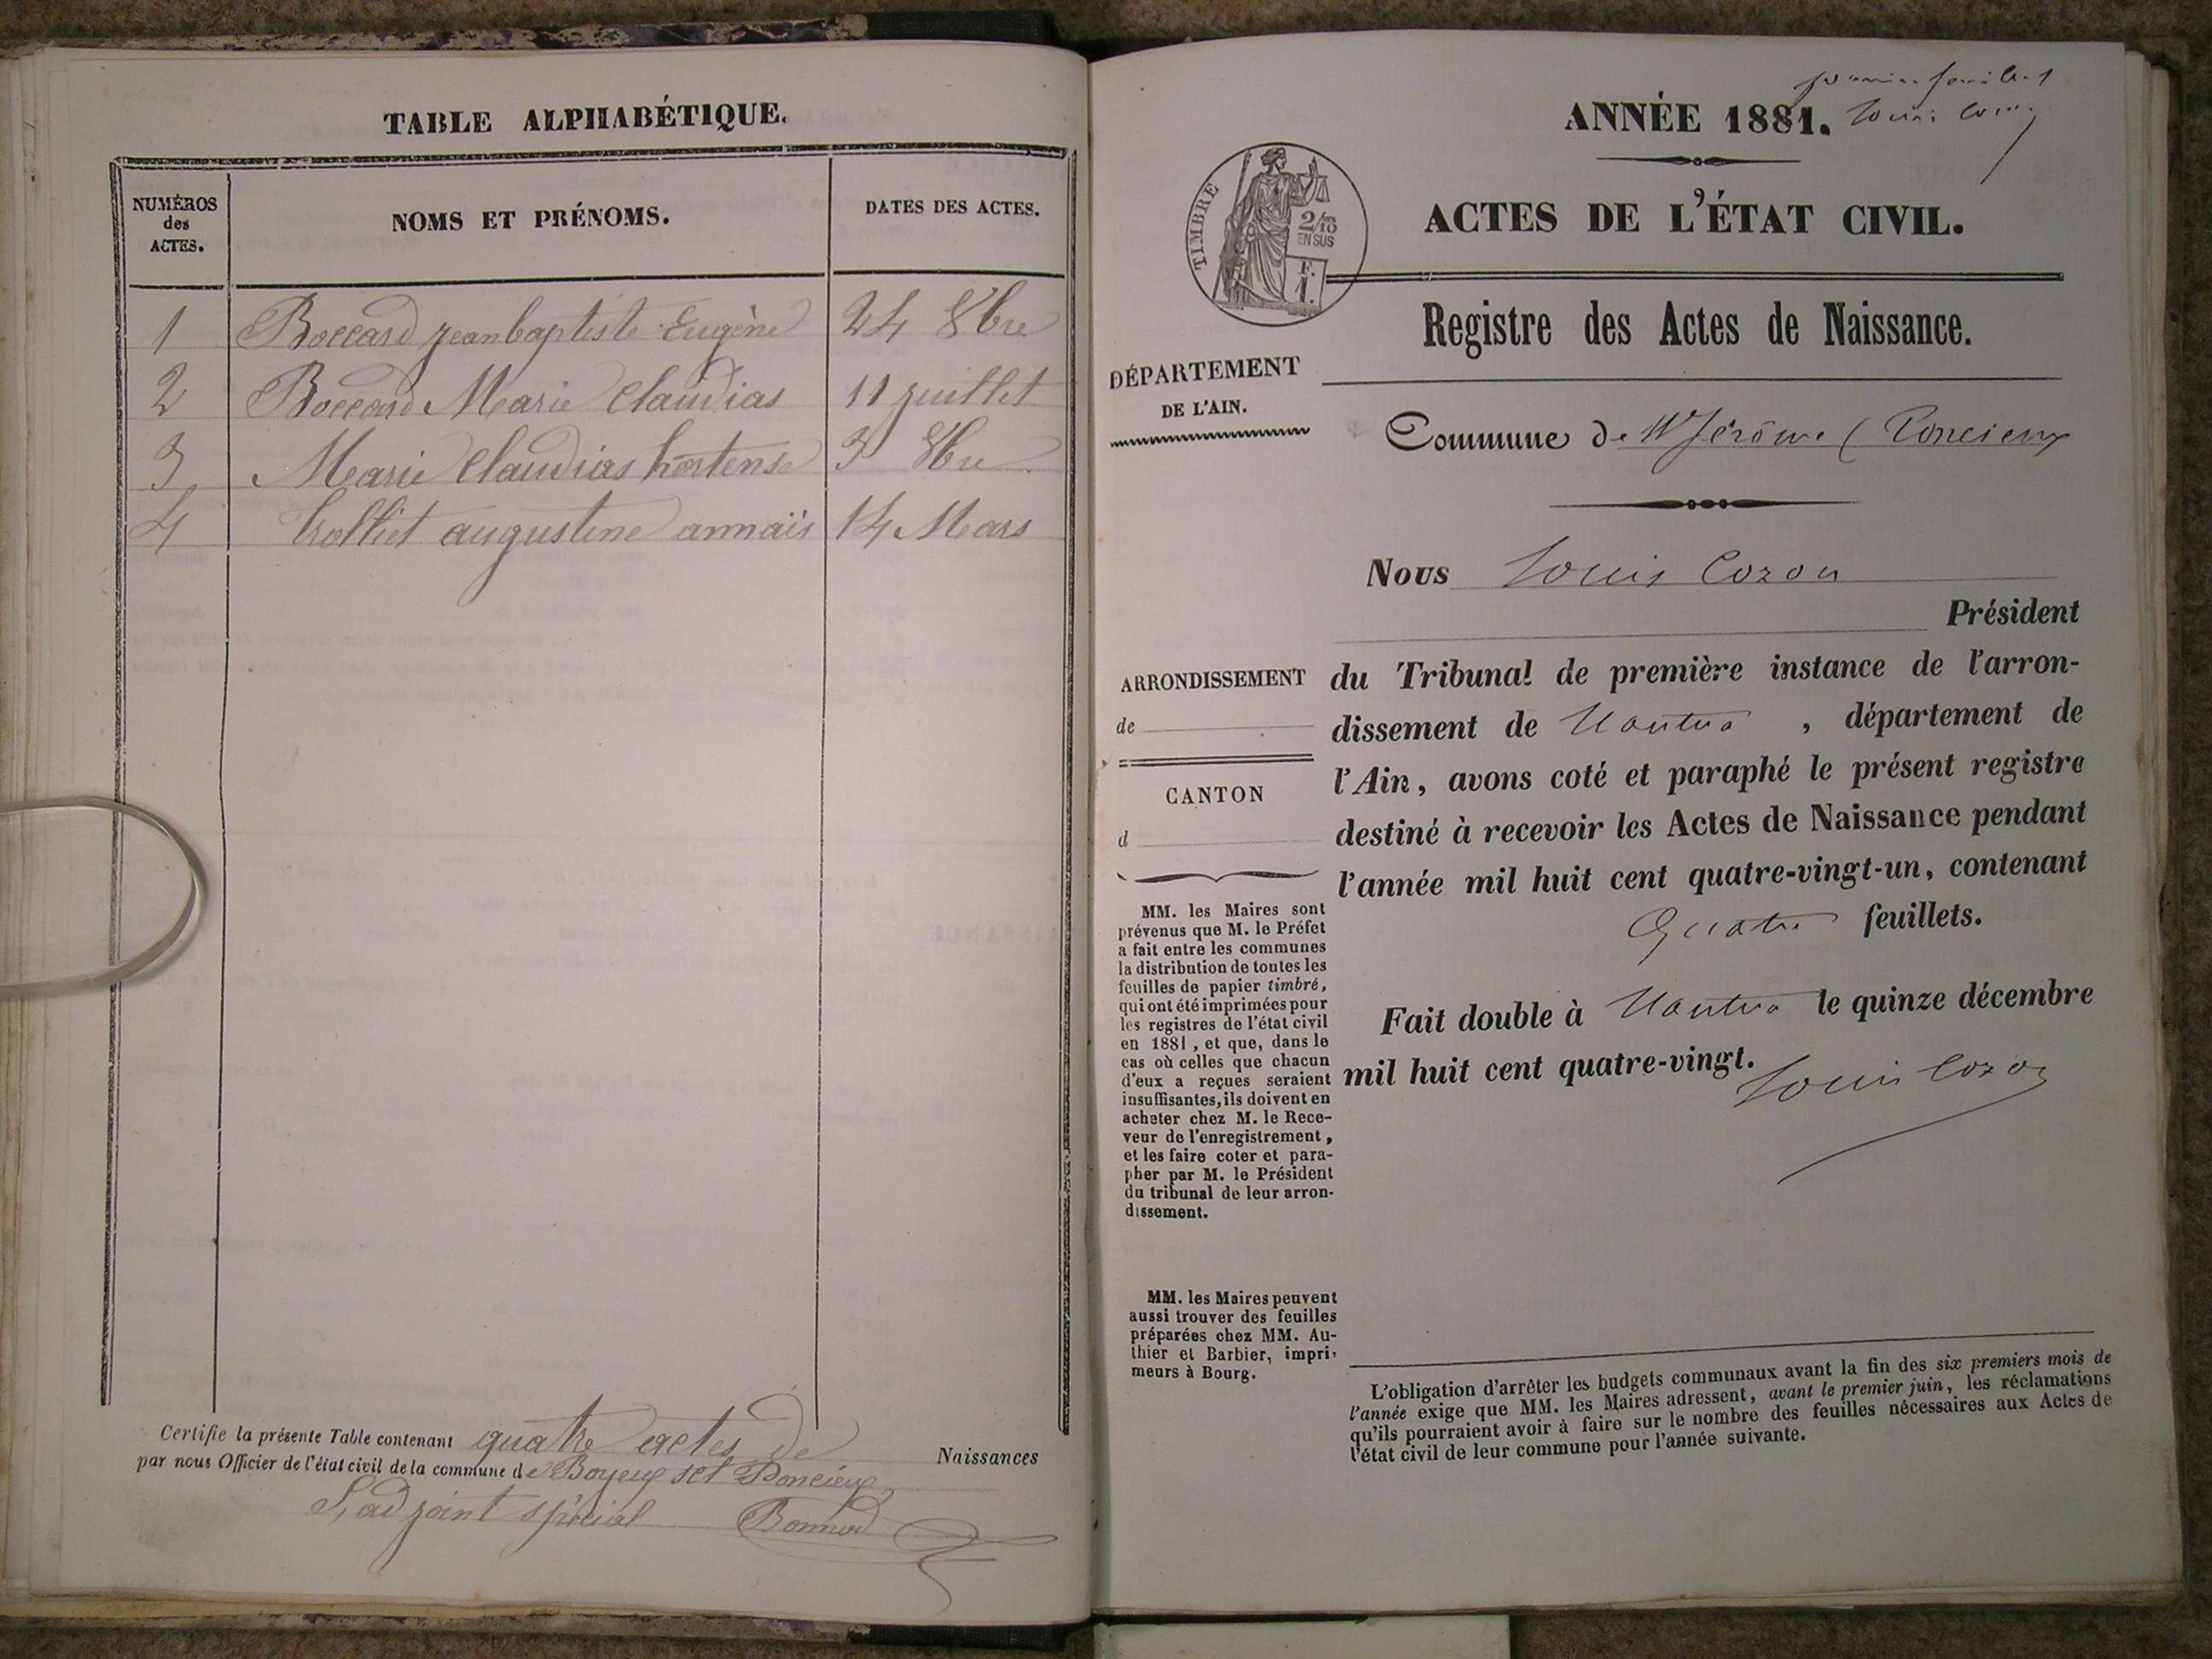 TABLE ALPHABÉTIQUE.
NUMÉROS des ACTES.
NOMS ET PRÉNOMS.
DATES DES ACTES.
1 Boccard jean baptiste Eugène 24 8bre
2 Boccard Marie Claudias 11 juillet
3 Marie Claudias hortense 3 8bre
4 Trolliet augustine annaïs 14 Mars
Certifie la présente Table contenant quatre actes de Naissances
par nous Officier de l'état civil de la commune de Boyeux st Poncieux
L'adjoint spécial Bonnod
ANNÉE 1881.
Louis
ACTES DE L'ÉTAT CIVIL.
TIMBRE
2/10 EN SUS
F. 1.
Registre des Actes de Naissance.
DÉPARTEMENT
DE L'AIN.
Commune de St Jérôme (Poncieux
Nous Louis Cozon
Président
ARRONDISSEMENT
de
CANTON
d
du Tribunal de première instance de l'arron-
dissement de Nantua, département de
l'Ain, avons coté et paraphé le présent registre
destiné à recevoir les Actes de Naissance pendant
l'année mil huit cent quatre-vingt-un, contenant
Quatre feuillets.
Fait double à Nantua le quinze décembre
mil huit cent quatre-vingt.
Louis Cozon
MM. les Maires sont
prévenus que M. le Préfet
a fait entre les communes
la distribution de toutes les
feuilles de papier timbré,
qui ont été imprimées pour
les registres de l'état civil
en 1881, et que, dans le
cas où celles que chacun
d'eux a reçues seraient
insuffisantes, ils doivent en
acheter chez M. le Rece-
veur de l'enregistrement,
et les faire coter et para-
pher par M. le Président
du tribunal de leur arron-
dissement.
MM. les Maires peuvent
aussi trouver des feuilles
préparées chez MM. Au-
thier et Barbier, impri-
meurs à Bourg.
L'obligation d'arrêter les budgets communaux avant la fin des six premiers mois de
l'année exige que MM. les Maires adressent, avant le premier juin, les réclamations
qu'ils pourraient avoir à faire sur le nombre des feuilles nécessaires aux Actes de
l'état civil de leur commune pour l'année suivante.